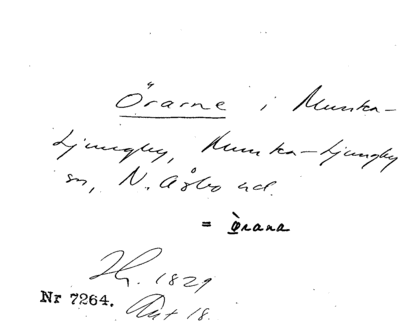 Örarne i Munka-
Ljungby, Munka-Ljungby
sn, N. Åsbo hd.
= Ørana
1829
Nr 7264. 18.